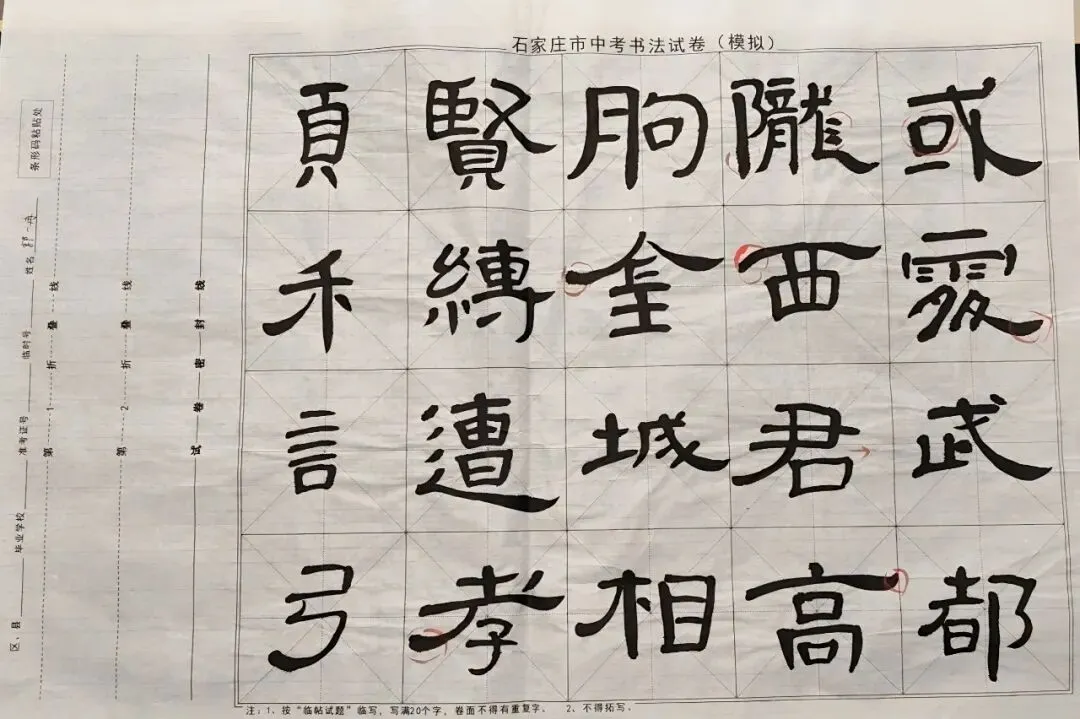 石家庄市中考书法试卷（模拟）
或武都
隴西君高
朐金城相
賢縛遭孝
頁禾言弓
试卷密封线
第2折叠线
第1折叠线
条形码粘贴处
区、县 毕业学校 准考证号 临时号 姓名
注：1、按“临帖试题”临写，写满20个字，卷面不得有重复字。 2、不得拓写。